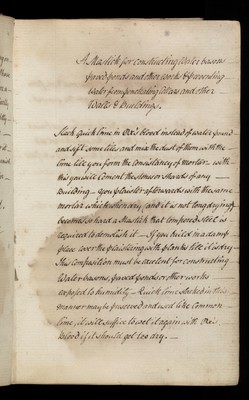 A Mastick for constructing Water basons
paved ponds and other works & preventing
water from penetrating Cellars and other
Walls & Buildings.
Slack quick lime in Ox's blood instead of water pound
and sift some tiles and mix the dust of them with the
lime till you form the consistency of mortar with
this you will Cement the stones or bricks of any
Building you plaister afterwards with the same
mortar which when dry (and it is not long drying)
becomes so hard a Mastick that tempered steel is
required to demolish it If you build in a damp
place cover the plaistering with planks till it is dry
This composition must be excelent for constructing
Water basons, paved ponds or other works
exposed to humidity Quick lime slacked in this
manner may be preserved and used like common
lime, it will suffice to wet it again with Ox's
blood if it should get too dry.